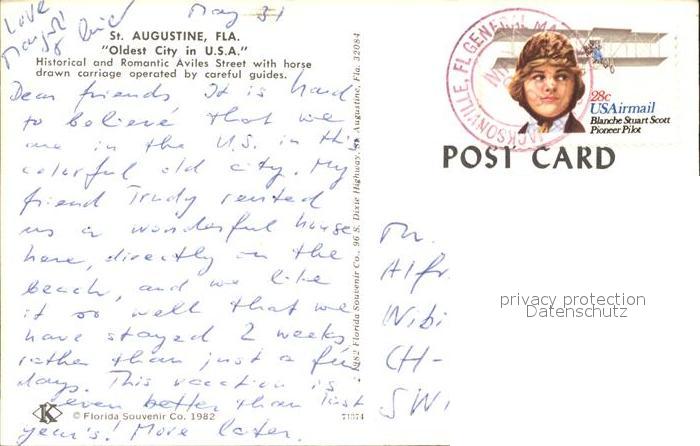 Love
Margit & Dind
May 31
St. AUGUSTINE, FLA.
"Oldest City in U.S.A."
Historical and Romantic Aviles Street with horse
drawn carriage operated by careful guides.
Dear friends It is hard
to believe that we
are in the U.S. in this
colorful old city. My
friend Trudy rented
us a wonderful house
here, directly on the
beach, and we like
it so well that we
have stayed 2 weeks,
rather than just a few
days. This vacation is
even better than last
year's! More later.
K © Florida Souvenir Co. 1982 71374
1982 Florida Souvenir Co., 96 S. Dixie Highway, St. Augustine, Fla. 32084
JACKSONVILLE, FL GENERAL MA
28c
USAirmail
Blanche Stuart Scott
Pioneer Pilot
POST CARD
Alfr
Wibi
CH-
SWI
privacy protection
Datenschutz